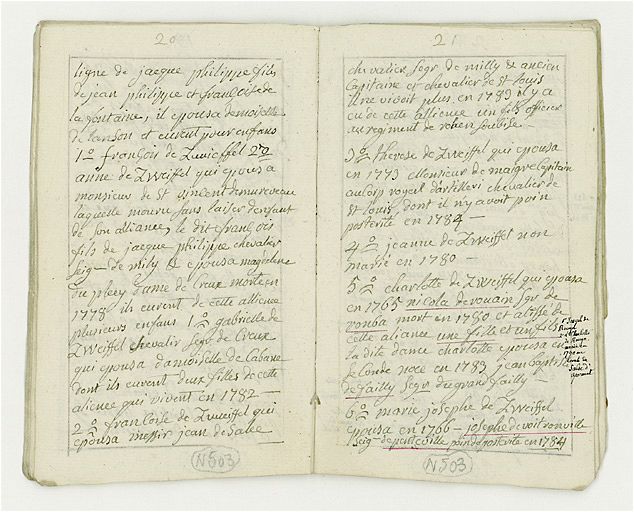 20
ligne de jacque philippe fils
de jean philippe et françoise de
la fontaine, il epousa demoiselle
de lanson et eurent pour enfans
1° françois de Zweiffel 2°
anne de Zweiffel qui epousa
monsieur de St vincent
laquelle mourru sans laiser denfant
de son alliance, le dit françois
fils de jacque philippe chevalier
seig- de milly & epousa magdelene
du dame de Creux morte en
1778 ils eurent de cette alliance
plusieurs enfans 1° gabrielle de
Zweiffel chevalier segr de Creux
qui epousa damoiselle de Cabane
dont ils eurent deux filles de cette
aliance qui vivent en 1782 —
2° francoise de Zweiffel qui
epousa messir jean de Salse
N503
21
chevalier segr de milly & ancien
Capitaine et chevalier de St louis
il ne vivoit plus en 1789 il y a
eu de cette allience un fils officier
au regiment de rohen soubise —
3° therese de Zweiffel qui epousa
en 1773 Monsieur de maigre Capitain
au Corp royal dartilleri chevalier de
St louis, dont il ny avoit poin
posterite en 1784 —
4° jeanne de Zweiffel non
marié en 1780 —
5° charlotte de Zweiffel qui epousa
en 1765 nicola de vouain segr de
vonba mort en 1780 et a laissé de
cette aliance une fille et un fils
la dite dame charlotte epousa en
seconde noce en 1783 jean baptiste
de failly Segr du grand failly —
6° marie josephe de Zweiffel
epousa en 1766 — josephe de voit ronville
seig- de point de posterité en 1784
N503